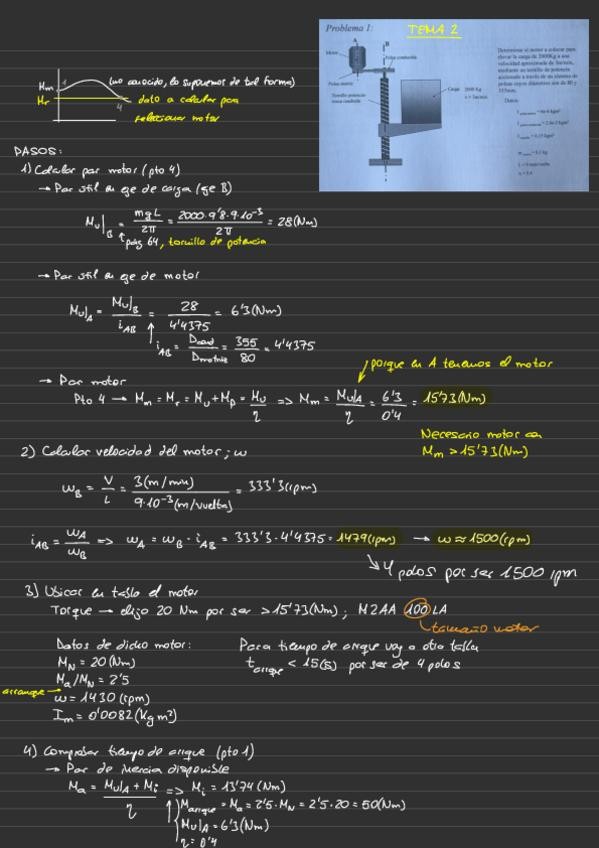 Problema 1:
TEMA 2
A
B
Motor
Polea conducida
Polea motriz
Tornillo potencia
rosca cuadrada
Carga 2000 Kg
v = 3m/min
Determinar el motor a colocar para
elevar la carga de 2000Kg a una
velocidad aproximada de 3m/min,
mediante un tornillo de potencia
accionado a través de un sistema de
poleas cuyos diámetros son de 80 y
355mm.
Datos:
Mm 1 (no conocido, lo suponemos de tal forma)
Mr 4 dato a calcular para
seleccionar motor
PASOS:
1) Calcular par motor (pto 4)
→ Par útil en eje de carga (eje B)
Mu|B = mgL / 2π = 2000·9'8·9·10⁻³ / 2π = 28 (Nm)
pág 64, tornillo de potencia
→ Par útil en eje de motor
Mu|A = Mu|B / iAB = 28 / 4'4375 = 6'3 (Nm)
iAB = Dcond / Dmotriz = 355 / 80 = 4'4375
porque en A tenemos el motor
→ Par motor
Pto 4 → Mm = Mr = Mu + Mp = Mu / η => Mm = Mu|A / η = 6'3 / 0'4 = 15'73 (Nm)
Necesario motor con
Mm > 15'73 (Nm)
2) Calcular velocidad del motor; ω
ωB = V / L = 3 (m/min) / 9·10⁻³ (m/vuelta) = 333'3 (rpm)
iAB = ωA / ωB => ωA = ωB · iAB = 333'3 · 4'4375 = 1479 (rpm) → ω ≈ 1500 (rpm)
↘ 4 polos por ser 1500 rpm
3) Ubicar en tabla el motor
Torque → elijo 20 Nm por ser > 15'73 (Nm); M2AA 100 LA
tamaño motor
Datos de dicho motor:
MN = 20 (Nm)
Ma/MN = 2'5
arranque
ω = 1430 (rpm)
Im = 0'0082 (Kg m²)
Para tiempo de arrque voy a otra tabla
tarrque < 15 (s) por ser de 4 polos
4) Comprobar tiempo de arrque (pto 1)
→ Par de inercia disponible
Ma = Mu|A + Mi / η => Mi = 13'74 (Nm)
Marrque = Ma = 2'5 · MN = 2'5 · 20 = 50 (Nm)
Mu|A = 6'3 (Nm)
η = 0'4